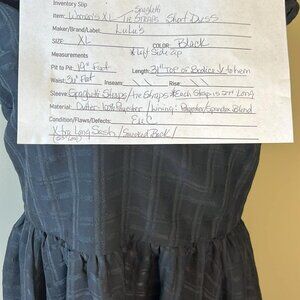 Inventory Slip
Spaghetti
Item: Women's XL Tie Straps Short Dress
Maker/Brand/Label: Lulu's
SIZE: XL COLOR: Black
Measurements * Left Side Zip
Pit to Pit: 19" Flat Length: 31" Top of Bodice to hem
Waist: Flat Inseam: Rise:
Sleeve: Spaghetti Straps/tie Straps *Each Strap is Long
Material: Outer-100% Polyester/Lining: Polyester/Spandex Blend
Condition/Flaws/Defects: EUC
Xtra Long Sash/Smocked Back/